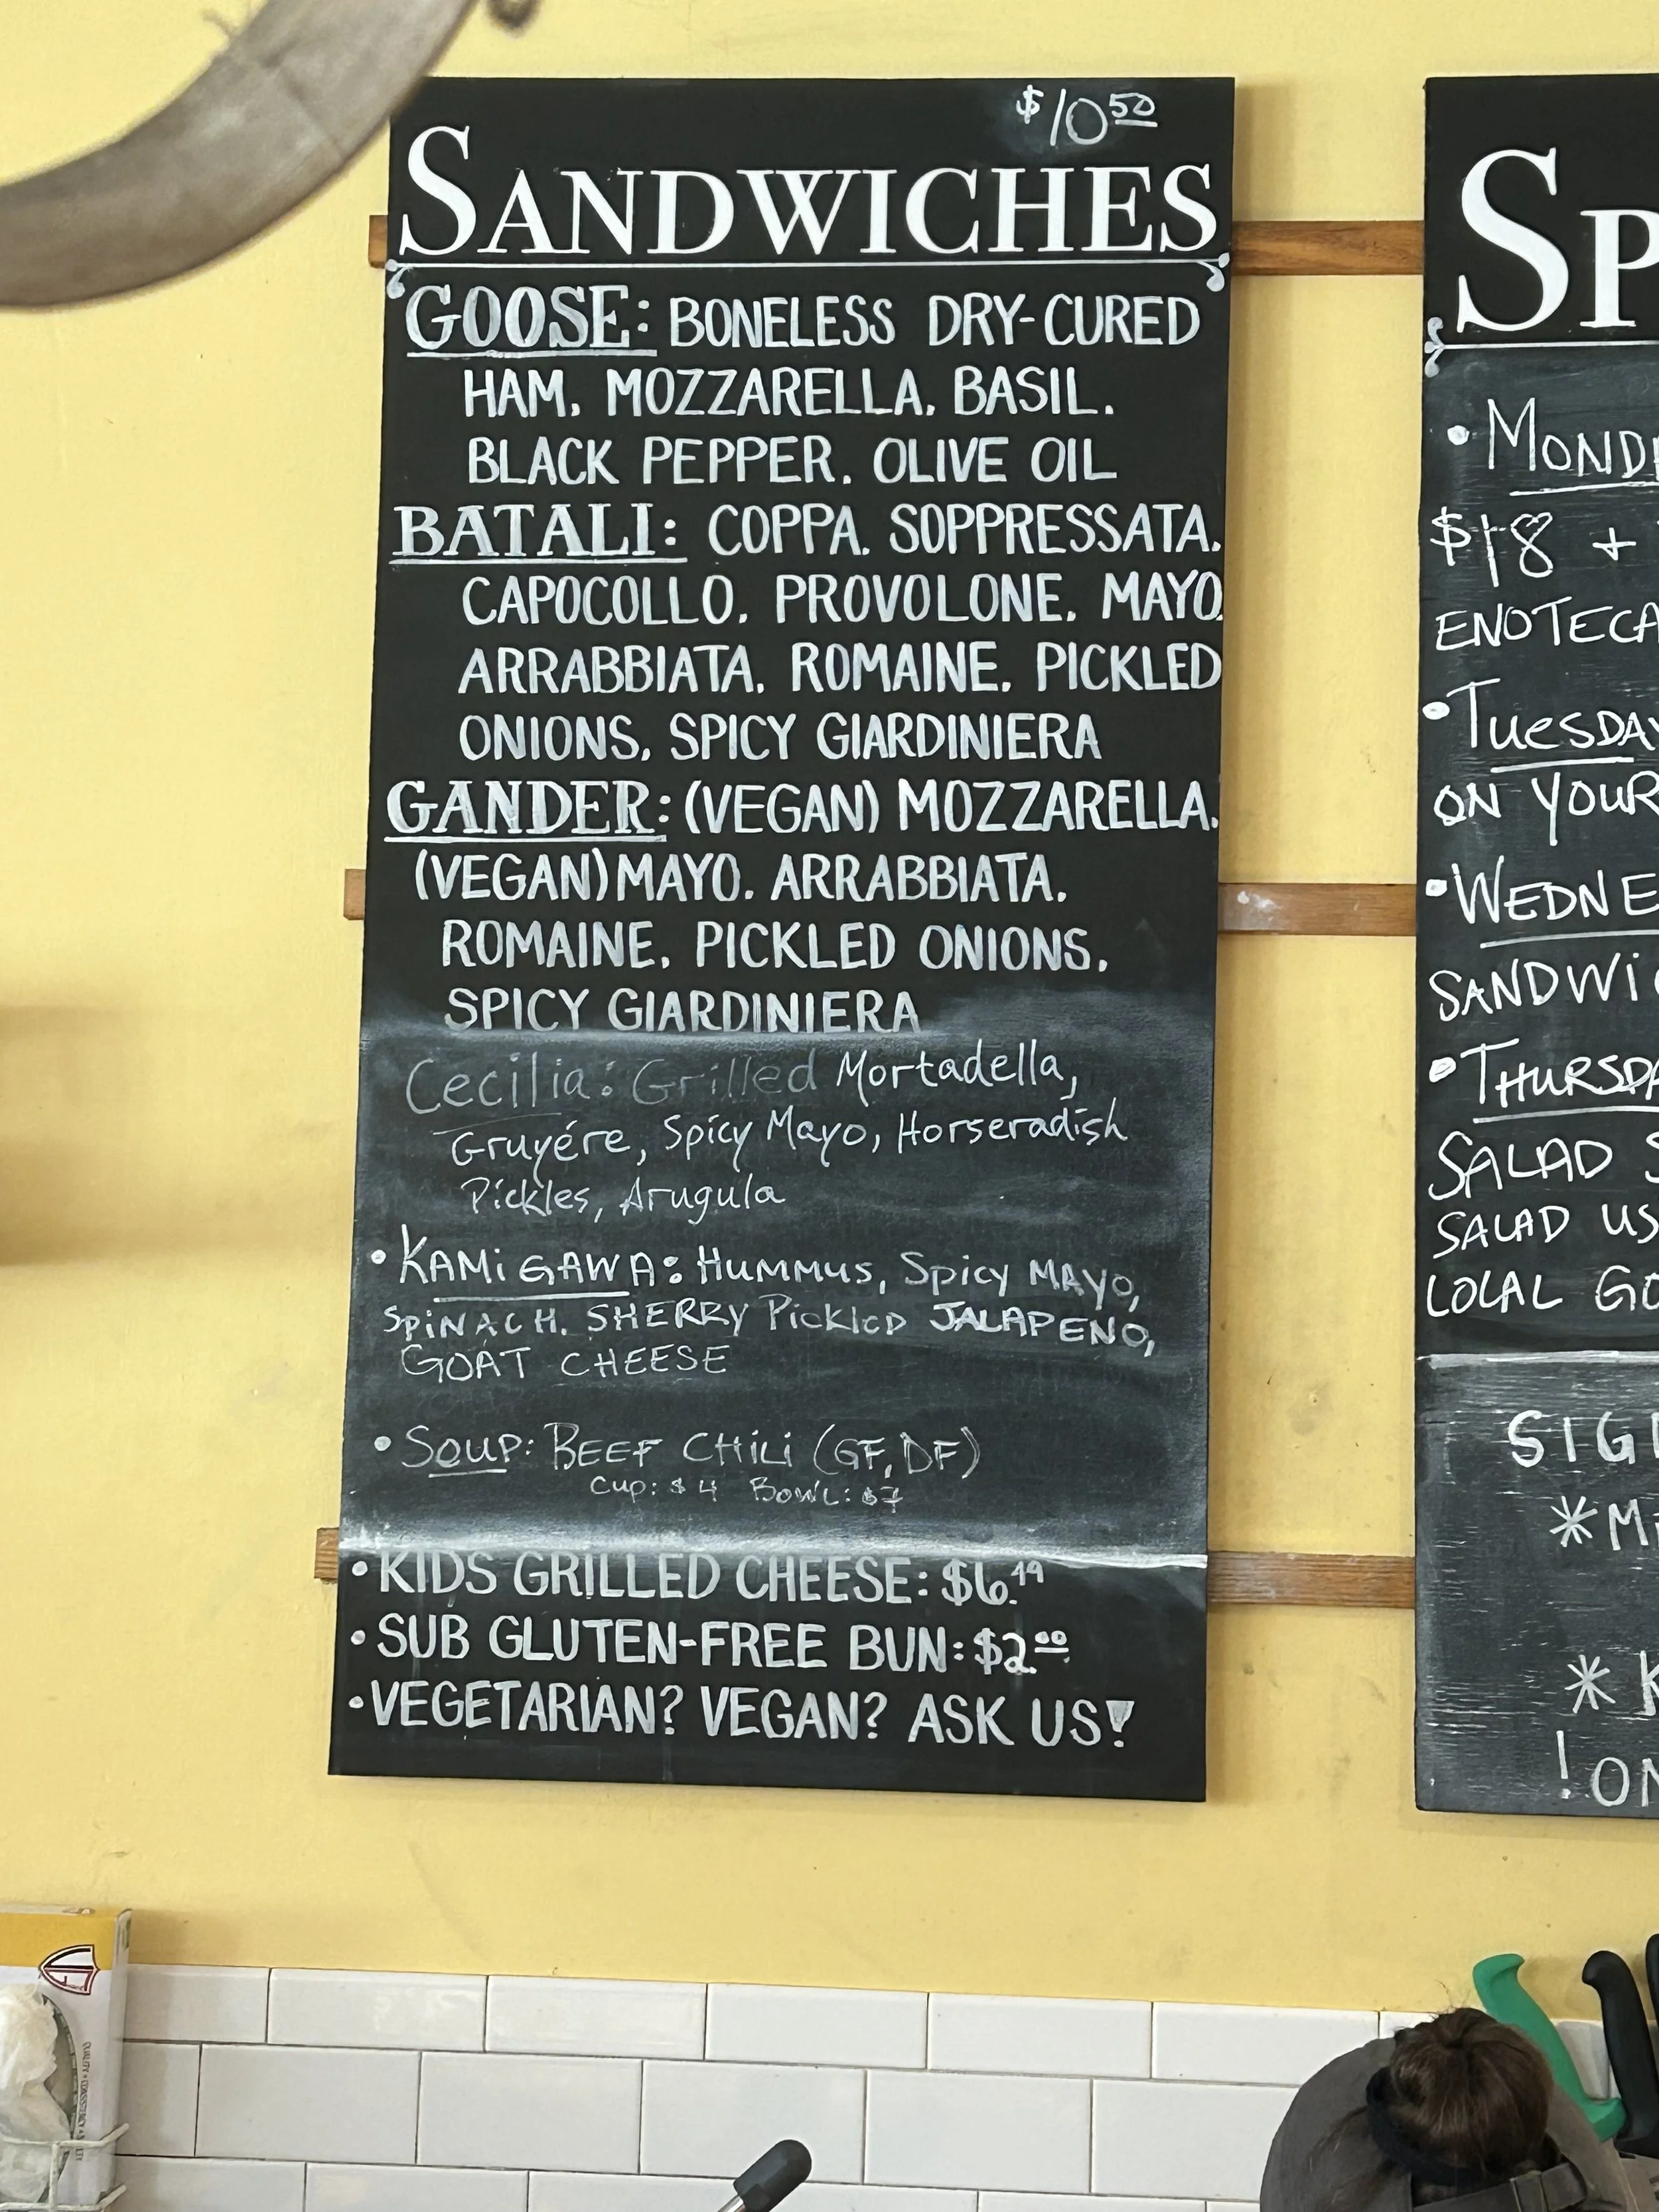 $10 50
SANDWICHES
GOOSE: BONELESS DRY-CURED
HAM. MOZZARELLA. BASIL.
BLACK PEPPER. OLIVE OIL
BATALI: COPPA. SOPPRESSATA.
CAPOCOLLO. PROVOLONE. MAYO.
ARRABBIATA. ROMAINE. PICKLED
ONIONS. SPICY GIARDINIERA
GANDER: (VEGAN) MOZZARELLA.
(VEGAN) MAYO. ARRABBIATA.
ROMAINE. PICKLED ONIONS.
SPICY GIARDINIERA
Cecilia: Grilled Mortadella,
Gruyére, Spicy Mayo, Horseradish
Pickles, Arugula
• KAMiGAWA: HUMMUS, Spicy MAYO,
SPiNACH. SHERRY PickleD JALAPENO,
GOAT CHEESE
• SOUP: BEEF CHiLi (GF, DF)
Cup: $4 BOWL: $7
• KIDS GRILLED CHEESE: $6.49
• SUB GLUTEN-FREE BUN: $2.00
• VEGETARIAN? VEGAN? ASK US!
SP
• MOND
$18 +
ENOTECA
• TUeSDAY
ON YOUR
• WEDNE
SANDWI
• THURSDA
SALAD S
SALAD US
LOCAL GO
SIG
* M
* K
! ON